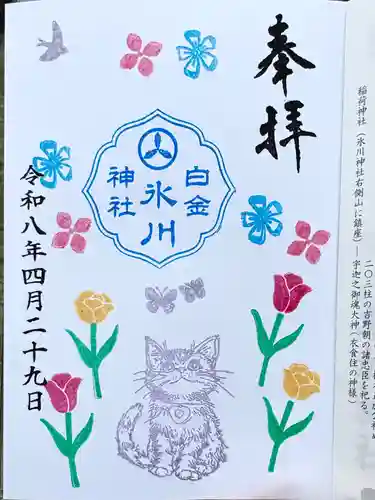 奉拝
白金
氷川
神社
令和八年四月二十九日
稲荷神社(氷川神社右側山に鎮座)—宇迦之御魂大神(衣食住の神様)
二〇三柱の吉野朝の諸忠臣を祀る。